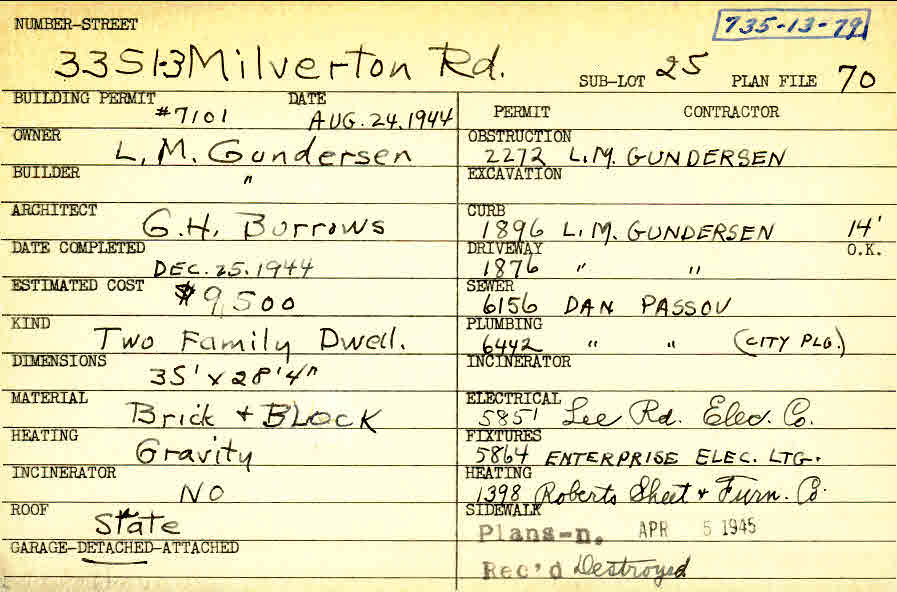 NUMBER-STREET
735-13-79
3351-3 Milverton Rd.
SUB-LOT 25 PLAN FILE 70
BUILDING PERMIT DATE
#7101 AUG. 24. 1944
OWNER
L. M. Gundersen
BUILDER
"
ARCHITECT
G. H. Burrows
DATE COMPLETED
DEC. 25. 1944
ESTIMATED COST $9,500
KIND
Two Family Dwell.
DIMENSIONS
35' x 28'4"
MATERIAL
Brick + BLOCK
HEATING
Gravity
INCINERATOR
NO
ROOF
Slate
GARAGE-DETACHED-ATTACHED
PERMIT CONTRACTOR
OBSTRUCTION
2272 L. M. GUNDERSEN
EXCAVATION
CURB
1896 L. M. GUNDERSEN 14'
DRIVEWAY O.K.
1876 " "
SEWER
6156 DAN PASSOV
PLUMBING
6442 " " (CITY PLG.)
INCINERATOR
ELECTRICAL
5851 Lee Rd. Elec. Co.
FIXTURES
5864 ENTERPRISE ELEC. LTG.
HEATING
1398 Roberts Sheet + Furn. Co.
SIDEWALK
Plans-n. APR 5 1945
Rec'd Destroyed